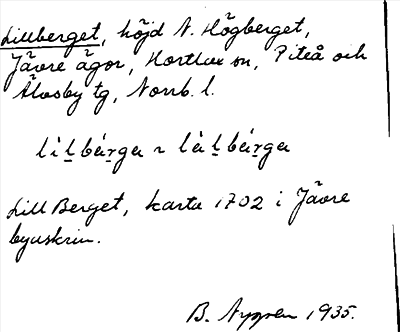 Lillberget, höjd N. Högberget,
Jävre ägor, Hortlax sn, Piteå och
Älvsby tg, Norrb. l.
lìḻbárga ~ làḻbárga
Lill Berget, karta 1702 i Jävre
byaskrin.
B. Nygren 1935.